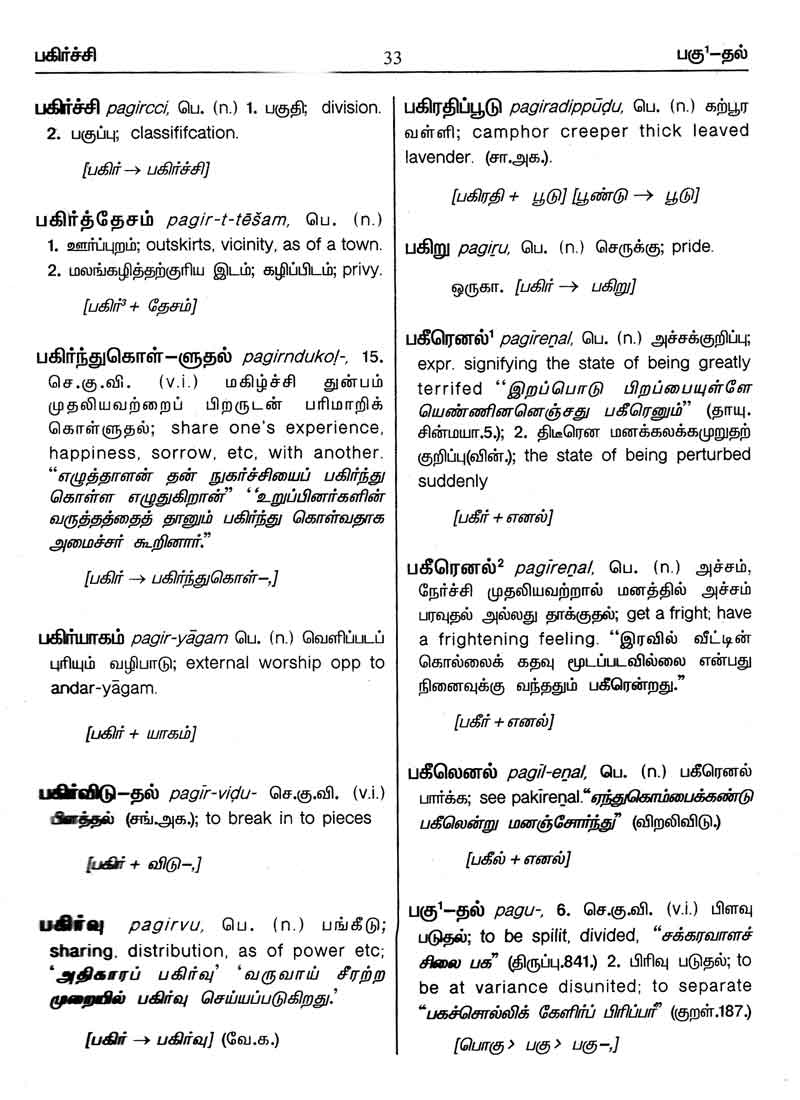 பகிர்ச்சி
33
பகு¹–தல்
பகிர்ச்சி pagircci, பெ. (n.) 1. பகுதி; division.
2. பகுப்பு; classififcation.
[பகிர் → பகிர்ச்சி]
பகிர்த்தேசம் pagir-t-tēšam, பெ. (n.)
1. ஊர்ப்புறம்; outskirts, vicinity, as of a town.
2. மலங்கழித்தற்குரிய இடம்; கழிப்பிடம்; privy.
[பகிர்³ + தேசம்]
பகிர்ந்துகொள்–ளுதல் pagirndukoḷ-, 15.
செ.கு.வி. (v.i.) மகிழ்ச்சி துன்பம்
முதலியவற்றைப் பிறருடன் பரிமாறிக்
கொள்ளுதல்; share one's experience,
happiness, sorrow, etc, with another.
“எழுத்தாளன் தன் நுகர்ச்சியைப் பகிர்ந்து
கொள்ள எழுதுகிறான்” ‘‘உறுப்பினர்களின்
வருத்தத்தைத் தானும் பகிர்ந்து கொள்வதாக
அமைச்சர் கூறினார்.”
[பகிர் → பகிர்ந்துகொள்–,]
பகிர்யாகம் pagir-yāgam பெ. (n.) வெளிப்படப்
புரியும் வழிபாடு; external worship opp to
andar-yāgam.
[பகிர் + யாகம்]
பகிர்விடு–தல் pagir-viḍu- செ.கு.வி. (v.i.)
பிளத்தல் (சங்.அக.); to break in to pieces
[பகிர் + விடு–,]
பகிர்வு pagirvu, பெ. (n.) பங்கீடு;
sharing, distribution, as of power etc;
‘அதிகாரப் பகிர்வு’ ‘வருவாய் சீரற்ற
முறையில் பகிர்வு செய்யப்படுகிறது.’
[பகிர் → பகிர்வு] (வே.க.)
பகிரதிப்பூடு pagiradippūḍu, பெ. (n.) கற்பூர
வள்ளி; camphor creeper thick leaved
lavender. (சா.அக.).
[பகிரதி + பூடு] [பூண்டு → பூடு]
பகிறு pagiṟu, பெ. (n.) செருக்கு; pride.
ஒருகா. [பகிர் → பகிறு]
பகீரெனல்¹ pagīreṉal, பெ. (n.) அச்சக்குறிப்பு;
expr. signifying the state of being greatly
terrifed “இறப்பொடு பிறப்பையுள்ளே
யெண்ணினனெஞ்சது பகீரெனும்” (தாயு.
சின்மயா.5.); 2. திடீரென மனக்கலக்கமுறுதற்
குறிப்பு(வின்.); the state of being perturbed
suddenly
[பகீர் + எனல்]
பகீரெனல்² pagīreṉal, பெ. (n.) அச்சம்,
நேர்ச்சி முதலியவற்றால் மனத்தில் அச்சம்
பரவுதல் அல்லது தாக்குதல்; get a fright; have
a frightening feeling. “இரவில் வீட்டின்
கொல்லைக் கதவு மூடப்படவில்லை என்பது
நினைவுக்கு வந்ததும் பகீரென்றது.”
[பகீர் + எனல்]
பகீலெனல் pagīl-eṉal, பெ. (n.) பகீரெனல்
பார்க்க; see pakīreṉal.“ஏந்துகொம்பைக்கண்டு
பகீலென்று மனஞ்சோர்ந்து” (விறலிவிடு.)
[பகீல் + எனல்]
பகு¹–தல் pagu-, 6. செ.கு.வி. (v.i.) பிளவு
படுதல்; to be spilit, divided, “சக்கரவாளச்
சிலை பக” (திருப்பு.841.) 2. பிரிவு படுதல்; to
be at variance disunited; to separate
“பகச்சொல்லிக் கேளிர்ப் பிரிப்பர்” (குறள்.187.)
[பொகு > பகு > பகு–,]